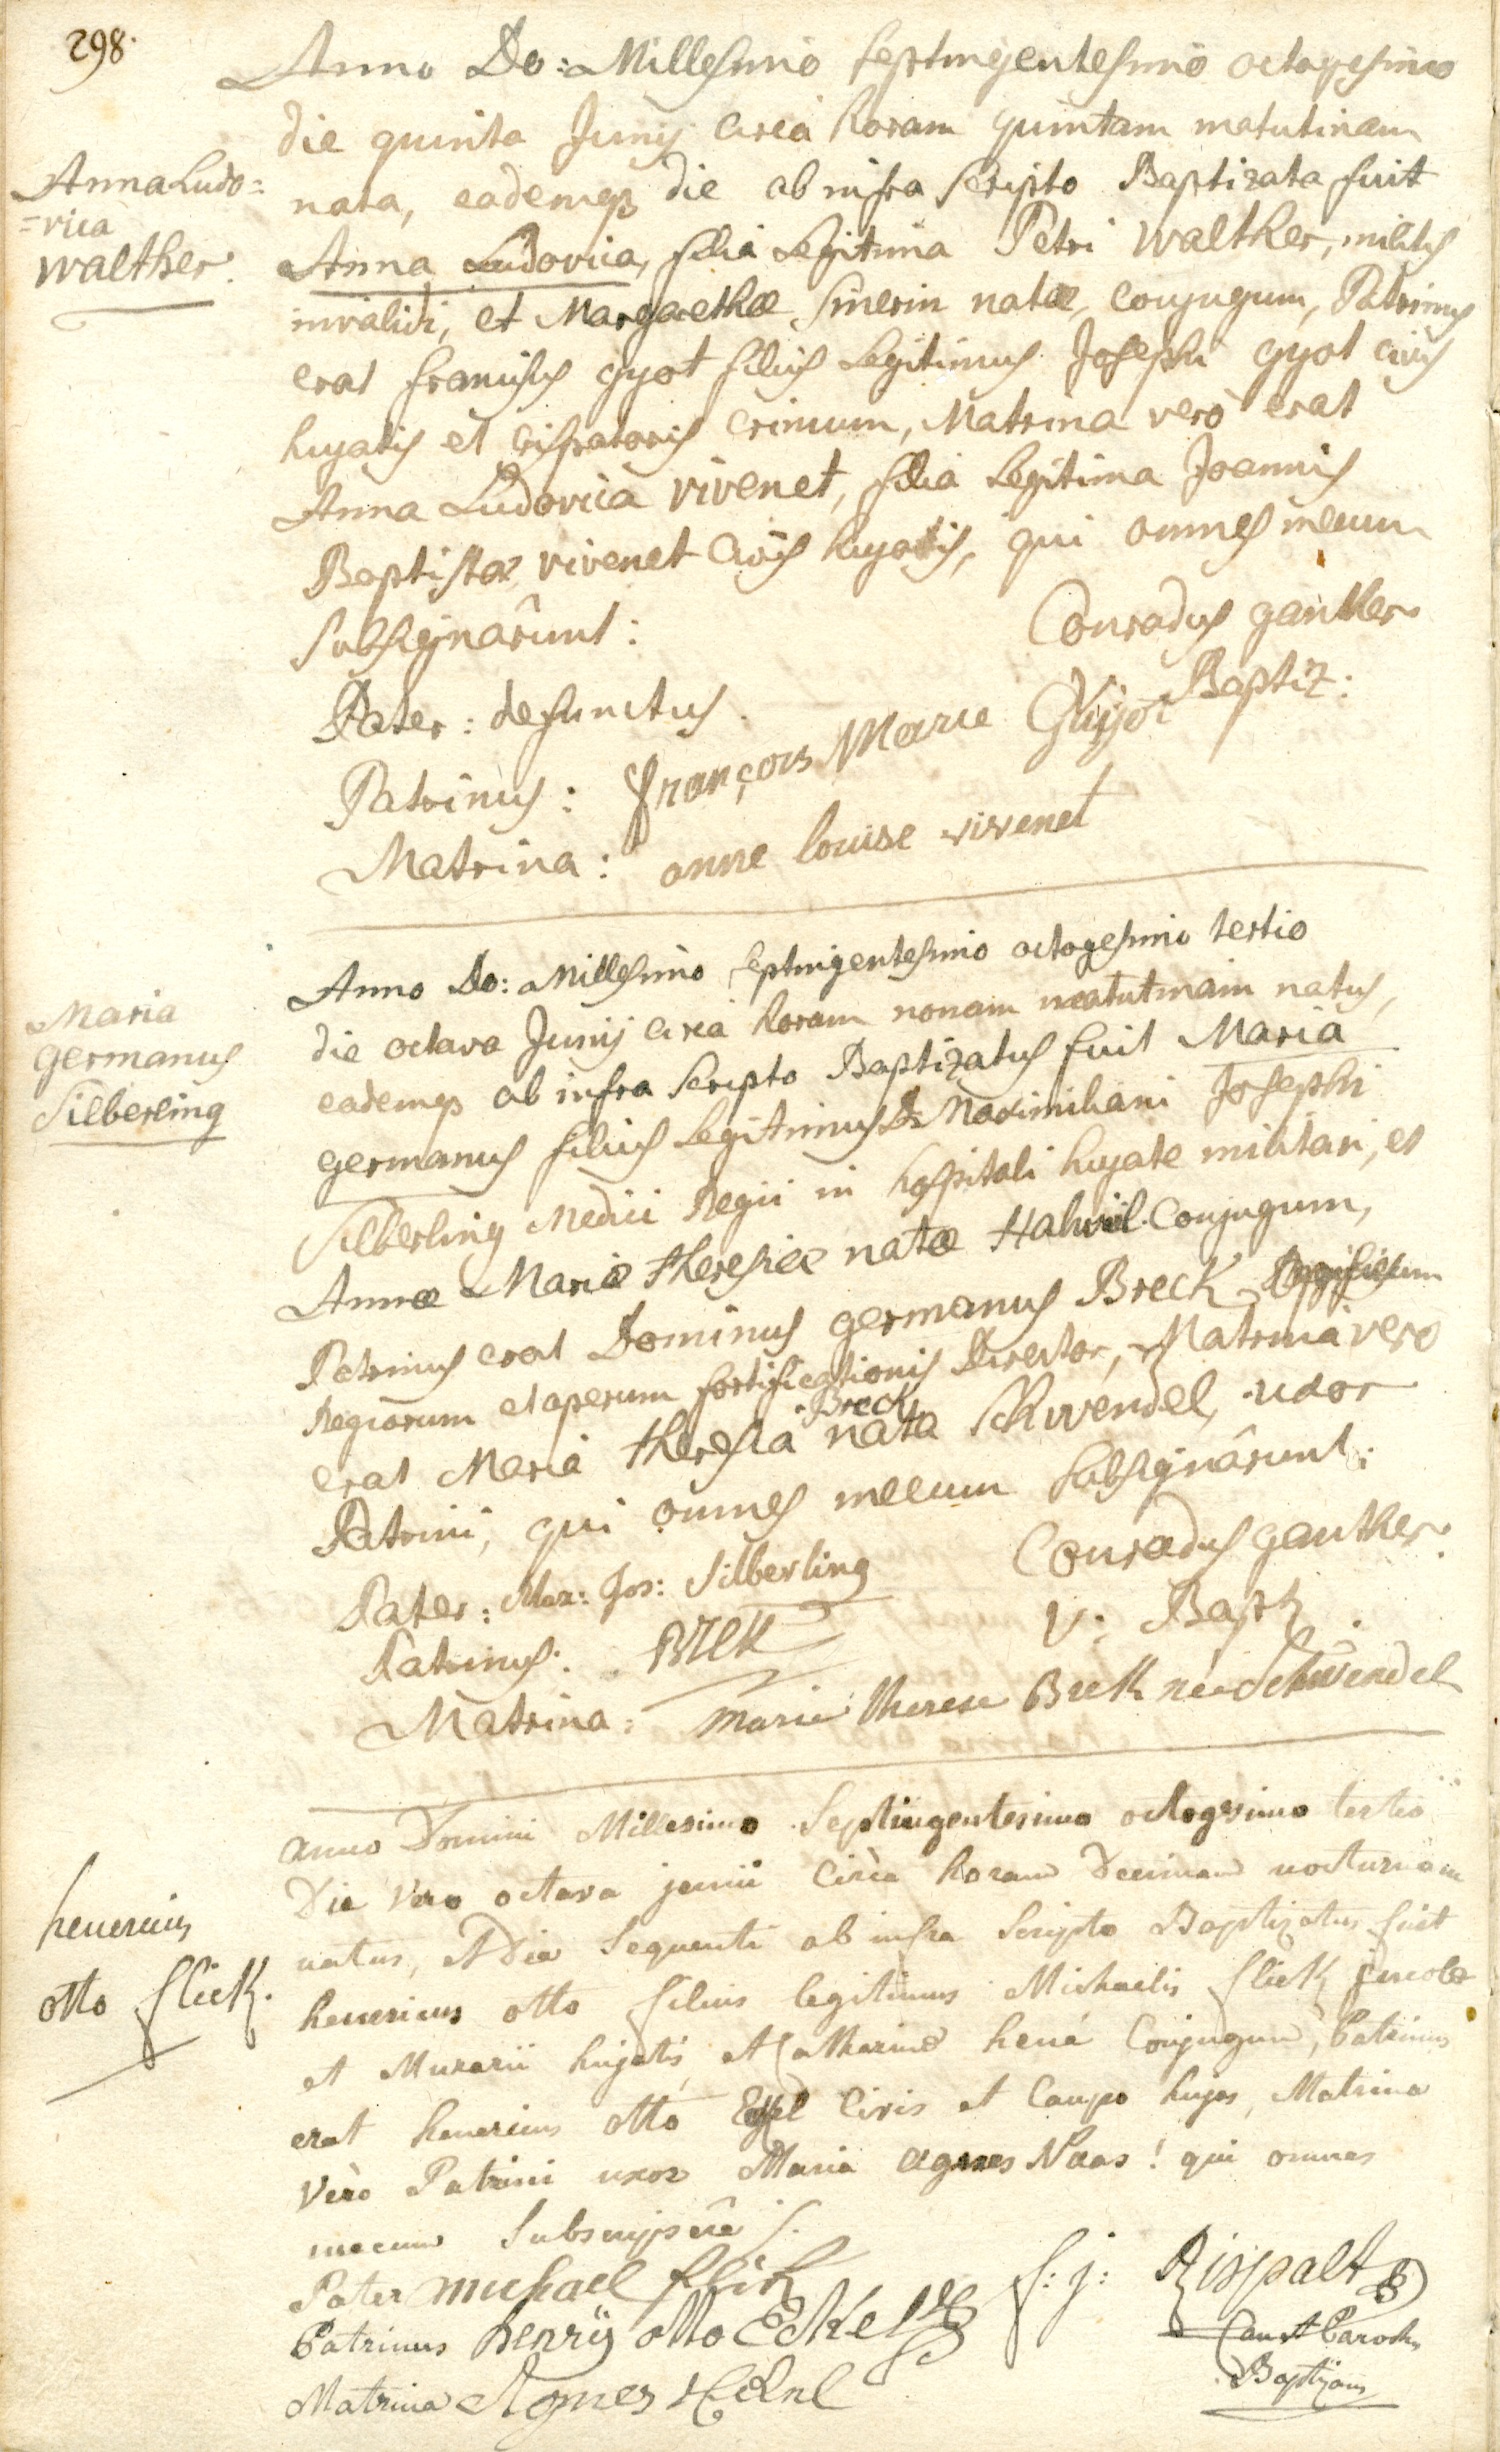 298.
Anno Do: Millesimo septingentesimo octogesimo
die quinta Junij circa horam quintam matutinam
Anna Ludo=
=vica
Walther.
nata, eademq3 die ab infra scripto Baptizata fuit
Anna Ludovica, filia legitima Petri Walther, militis
invalidi, et Margarethæ Sinerin natæ, conjugum, Patrinus
erat franciscus gyot filius legitimus Josephi gyot civis
hujatis et crispatoris crinium, Matrina verò erat
Anna Ludovica vivenet, filia legitima Joannis
Baptistæ vivenet civis hujatis, qui omnes mecum
subsignârunt:
Conradus ganther
Baptiz:
Pater: defunctus.
Patrinus: françois Marie Guyot
Matrina: anne louise vivenet
Maria
germanus
Silberling
Anno Do: Millesimo septingentesimo octogesimo tertio
die octava Junij circa horam nonam matutinam natus,
eademq3 ab infra scripto Baptizatus fuit Maria
germanus filius legitimus D. Maximiliani Josephi
Silberling Medici Regii in hospitali hujate militari, et
Annæ Mariæ theresiæ natæ conjugum,
Patrinus erat Dominus germanus Breck
Regiorum et operum fortificationis Director, Matrina verò
erat Maria theresia Breck nata Schwendel, uxor
Patrini, qui omnes mecum subsignârunt:
Conradus ganther.
V. Bapt
Pater: Max: Jos: Silberling
Patrinus: Breck
Matrina: marie therese Breck née Schwendel
henericus
otto flick.
anno Domini Millesimo Septingentesimo octogesimo tertio
Die vero octava junii circa horam Decimam nocturnam
natus, et Die sequenti ab infra scripto Baptizatus fuit
henericus otto filius legitimus Michaelis flick incolæ
et Murarii hujatis, et Catharinæ hené Conjugum, Patrinus
erat henericus otto Civis et Caupo hujas, Matrina
verò Patrini uxor Maria agnes Naas! qui omnes
mecum subscripsere
Pater Michael flick
Patrinus henrÿ otto Eckel
Matrina Agnes
f: j: Rispalt
Can et Paroch
Baptizans